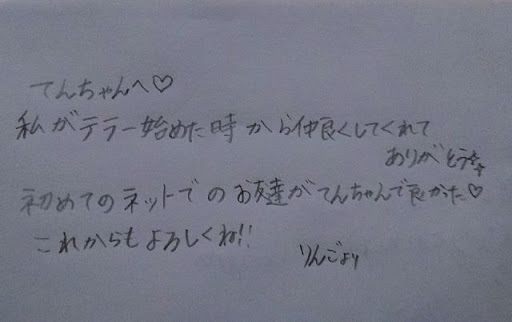 てんちゃんへ♡
私がテラー始めた時から仲良くしてくれて
ありがとう
初めてのネットでのお友達がてんちゃんで良かった♡
これからもよろしくね!!
りんごより